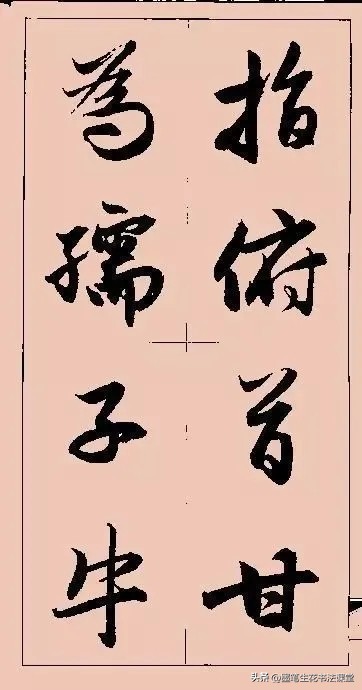 指俯首甘
為孺子牛
头条@墨笔生花书法课堂